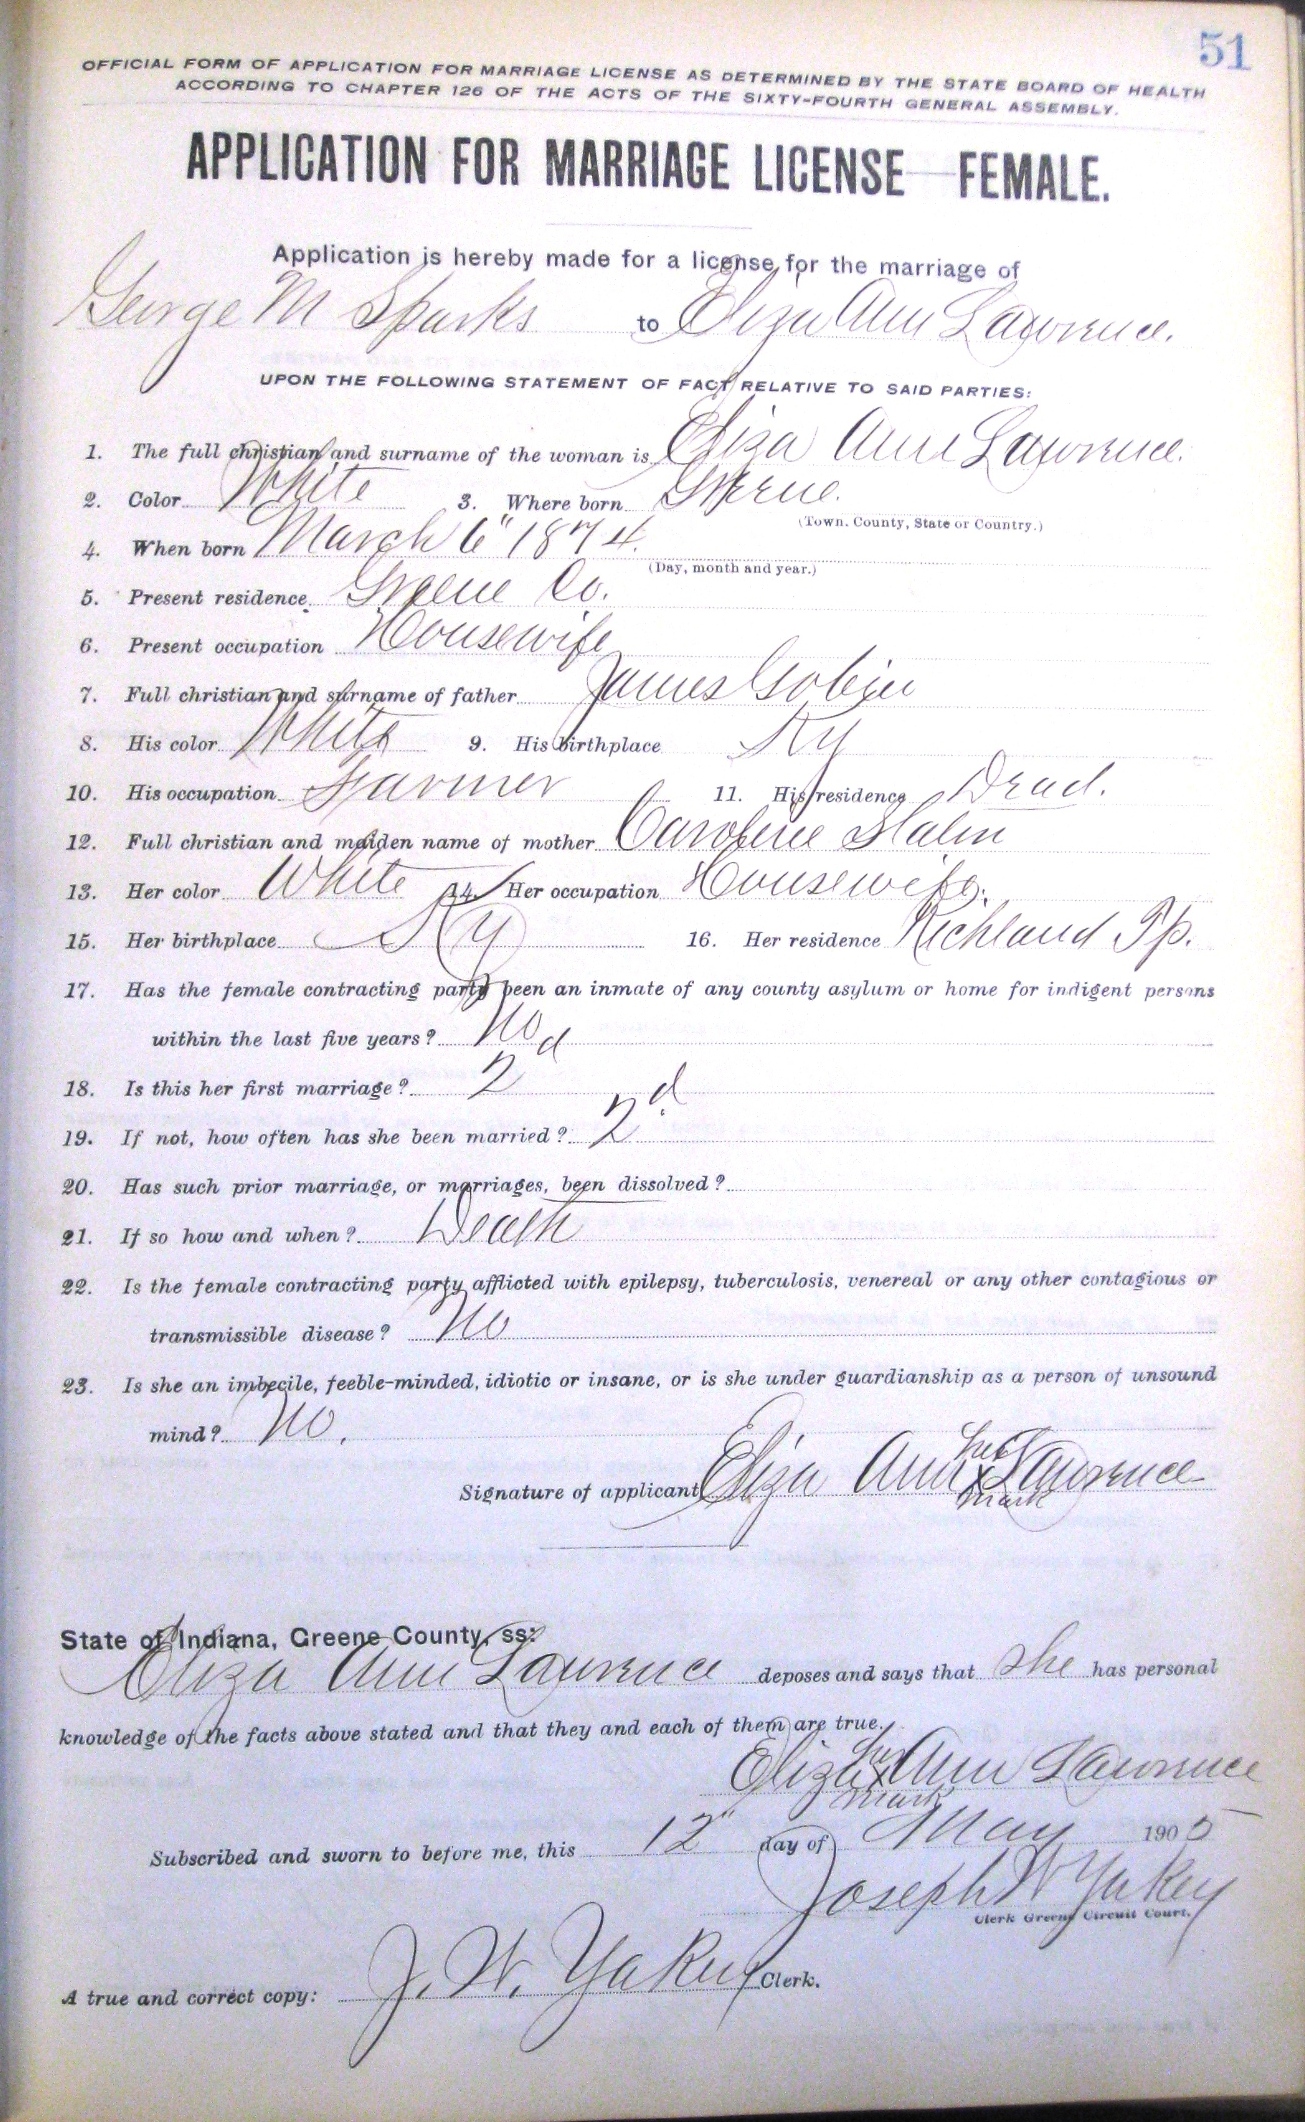 51
OFFICIAL FORM OF APPLICATION FOR MARRIAGE LICENSE AS DETERMINED BY THE STATE BOARD OF HEALTH
ACCORDING TO CHAPTER 126 OF THE ACTS OF THE SIXTY-FOURTH GENERAL ASSEMBLY.
APPLICATION FOR MARRIAGE LICENSE FEMALE.
Application is hereby made for a license for the marriage of
George M Sparks to Eliza Ann Lawrence.
UPON THE FOLLOWING STATEMENT OF FACT RELATIVE TO SAID PARTIES:
1. The full christian and surname of the woman is Eliza Ann Lawrence.
2. Color White 3. Where born Greene.
(Town. County, State or Country.)
4. When born March 6" 1874.
(Day, month and year.)
5. Present residence Greene Co.
6. Present occupation Housewife
7. Full christian and surname of father James Gobin
8. His color White 9. His birthplace Ky
10. His occupation Farmer 11. His residence Dead.
12. Full christian and maiden name of mother Caroline
13. Her color White 14. Her occupation Housewife.
15. Her birthplace Ky 16. Her residence Richland Tp.
17. Has the female contracting party been an inmate of any county asylum or home for indigent persons
within the last five years? No
18. Is this her first marriage? 2d
19. If not, how often has she been married? 2d
20. Has such prior marriage, or marriages, been dissolved?
21. If so how and when? Death
22. Is the female contracting party afflicted with epilepsy, tuberculosis, venereal or any other contagious or
transmissible disease? No
23. Is she an imbecile, feeble-minded, idiotic or insane, or is she under guardianship as a person of unsound
mind? No.
Signature of applicant Eliza Ann her x mark Lawrence
State of Indiana, Greene County, ss:
Eliza Ann Lawrence deposes and says that she has personal
knowledge of the facts above stated and that they and each of them are true.
Eliza her x mark Ann Lawrence
Subscribed and sworn to before me, this 12" day of May 1905
Joseph W Yakey
Clerk Greene Circuit Court.
A true and correct copy: J. W. Yakey Clerk.